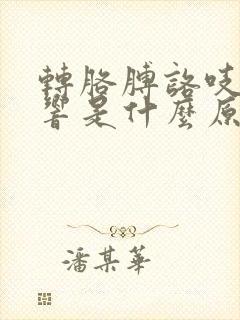 轉胳膊諮吱
響是什麼原
潘某華